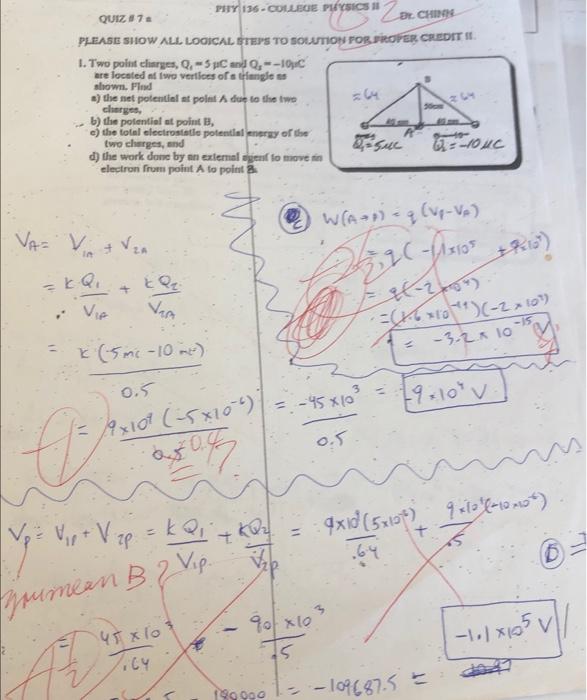 PHY 136 - COLLEGE PHYSICS II
QUIZ # 7 a
Dr. CHINN
PLEASE SHOW ALL LOGICAL STEPS TO SOLUTION FOR PROPER CREDIT !!.
1. Two point charges, Q₁ = 5 µC and Q₂ = -10µC
are located at two vertices of a triangle as
shown. Find
a) the net potential at point A due to the two
charges,
b) the potential at point B,
c) the total electrostatic potential energy of the
two charges, and
d) the work done by an external agent to move an
electron from point A to point B.
B
≈64
≈64
A
Q₁=5µC
Q₂=-10µC
W(A→P) = q(Vp-VA)
= q(-1.1x10⁵ + 9x10⁴)
= q(-2x10⁴)
=(1.6x10⁻¹⁹)(-2x10⁴)
= -3.2x10⁻¹⁵ V
VA = V1A + V2A
= kQ1/V1A + kQ2/V2A
= k(5mc-10mc)/0.5
= 9x10⁹(-5x10⁻⁶)/0.5 = -45x10³/0.5 = -9x10⁴ V
0.4?
Vp = V1p + V2p = kQ1/V1p + kQ2/V2p = 9x10⁹(5x10⁻⁶)/.64 + 9x10⁹(-10x10⁻⁶)/.5
you mean B?
= 45x10³/.64 - 90x10³/.5
-1.1x10⁵ V
180000 = -109687.5 =